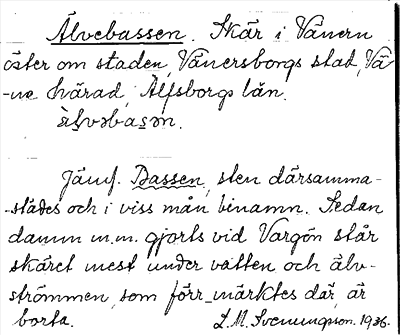 Älvebassen. Skär i Vänern
öster om staden, Vänersborgs stad, Vä-
-ne härad, Älfsborgs län.
Jämf. Bassen, sten därsamma-
-städes och i viss mån binamn. Sedan
damm m.m. gjorts vid Vargön står
skäret mest under vatten och älv-
strömmen, som förr märktes där, är
borta. L.M. Svenungson. 1936.